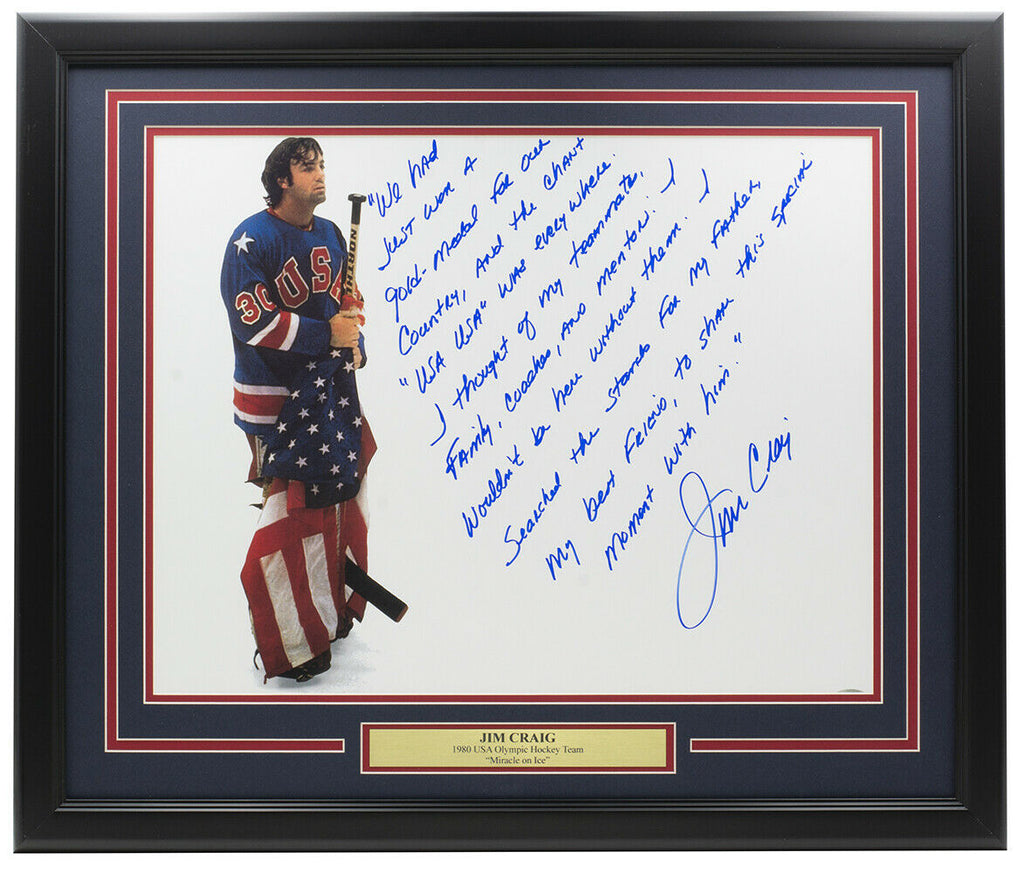 "We had
Just won a
gold-medal for our
Country, and the chant
"USA USA" was everywhere.
I thought of my teammates,
Family, coaches, and mentors. I
Wouldn't be here without them. I
Searched the stands for my Father,
my best Friend, to share this special
moment with him."
Jim Craig
USA
30
NORTH
JIM CRAIG
1980 USA Olympic Hockey Team
"Miracle on Ice"